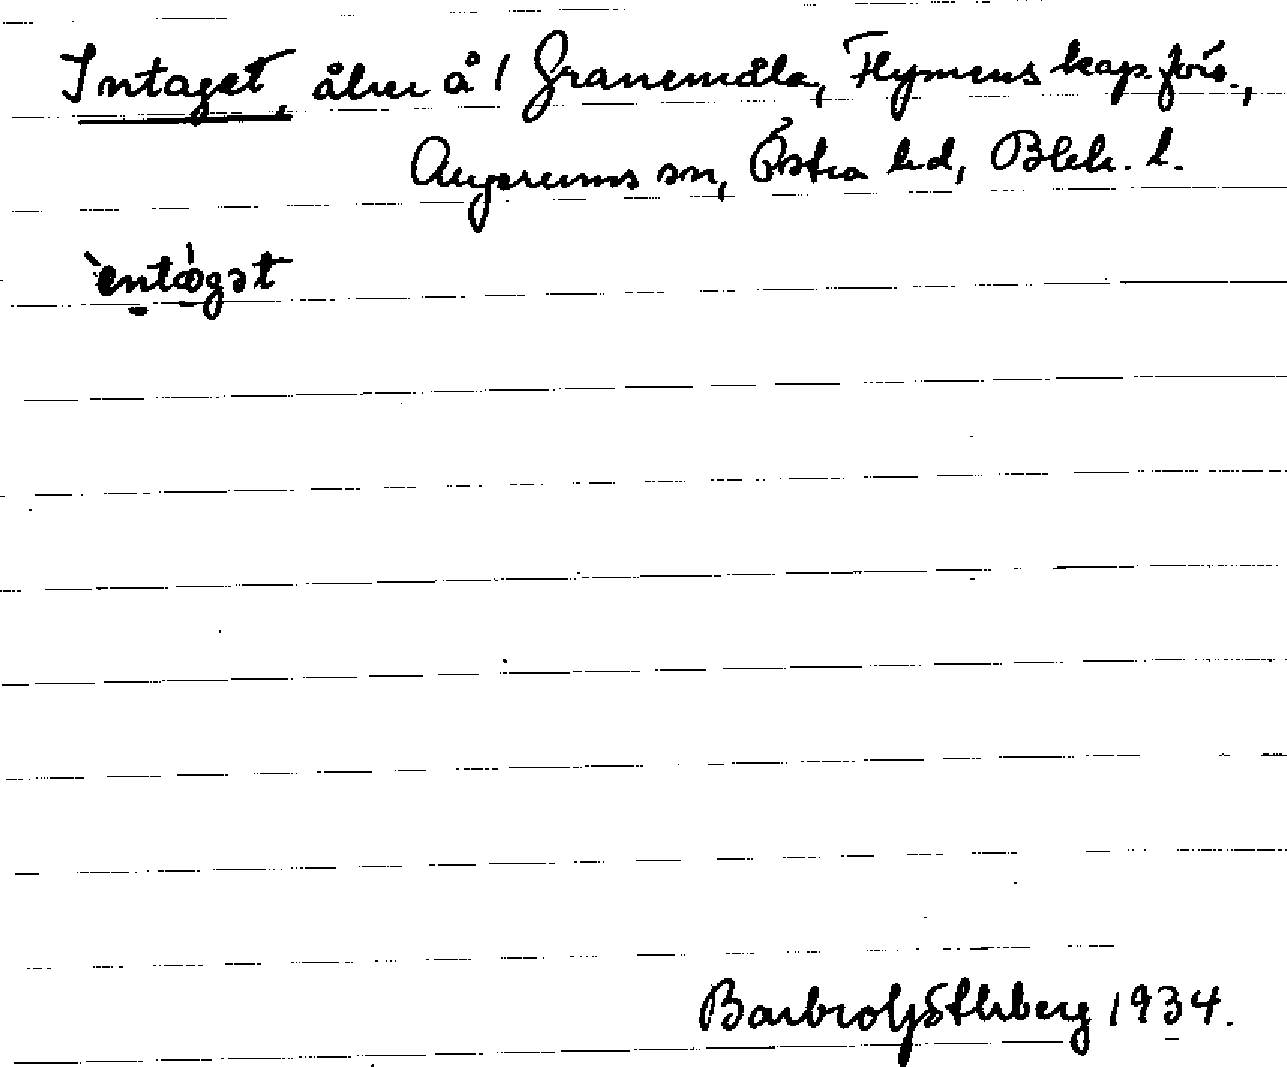 Intaget, åker å 1 Granemåla, Flymens kap.förs.,
Augerums sn, Östra hd, Blek. l.
`entágət
Barbro Götherberg 1934.